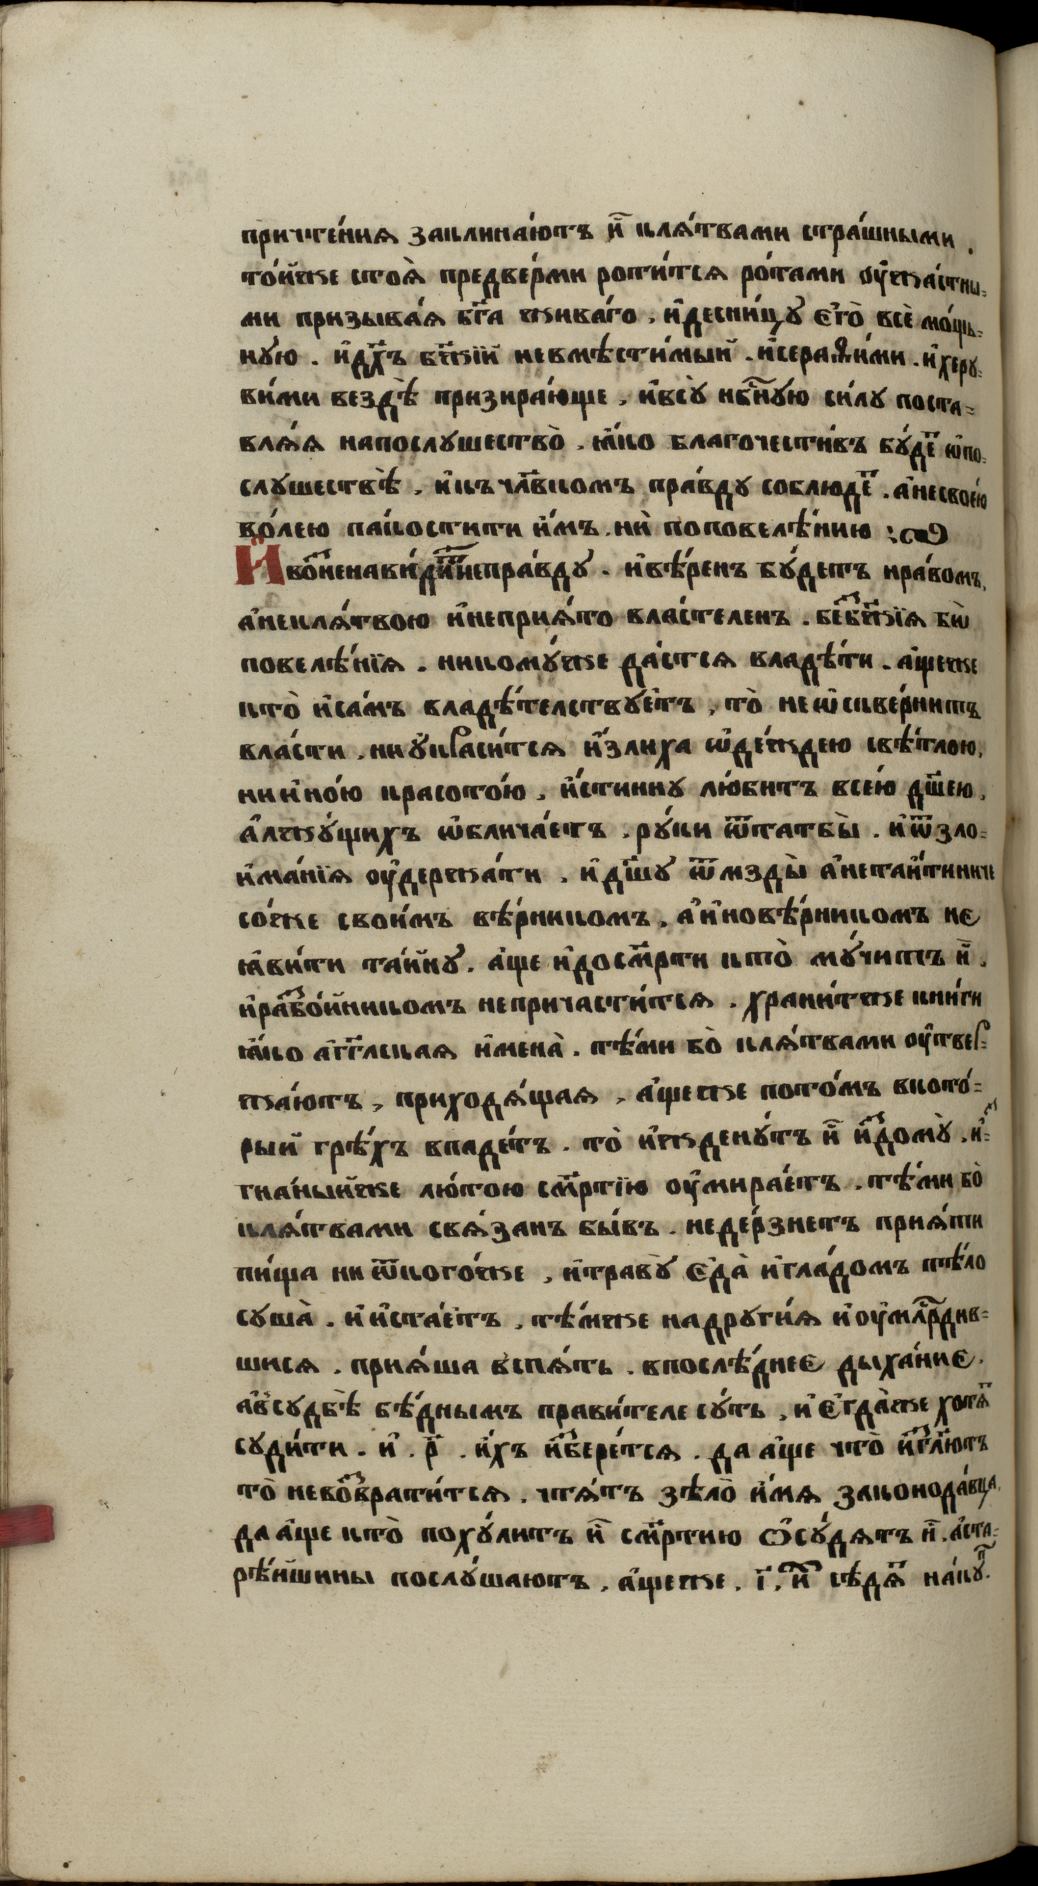 причте́ниѧ заклина́ютъ и҆̀клѧ́твами стра́шными .
то́йже стоѧ̀ предве́рми роти́тсѧ ро́тами оу҆жа́стны-
ми призыва́ѧ бг҃а жива́го , и҆десни́цу є҆го̀ всѐ мо́щь-
ную . и҆дх҃ъ бж҃їй невмѣсти́мый . и҆сераѳи́ми . и҆херу-
ви́ми вездѣ̀ призира́юще , и҆всю̀ нбⷭ҇ную си́лу поста-
влѧ́ѧ напослушество̀ . ꙗ҆́ко благочести́въ бу́деⷮ ю҆по-
слушествѣ̀ , и҆къ чл҃вкомъ пра́вду соблюде́ⷮ . а҆несвое́ю
во́лею па́костити и҆́мъ . нѝ поповелѣ́нию :
И҆воⷥненави́диⷮнепра́вду . и҆вѣ́ренъ бу́детъ нра́вомъ ,
а҆неклѧ́твою и҆неприѧ́то вла́стеленъ . беⷥбж҃їѧ бѡ̀
повелѣ́нїѧ . никому́же да́стсѧ владѣ́ти . а҆́щеже
кто̀ и҆са́мъ владѣ́телствуетъ , то̀ неѡ҆скве́рнитъ
вла́сти . ниу҆кра́ситсѧ и҆́злиха ѡ҆де́ждею свѣ́тлою ,
нии҆но́ю красото́ю , и҆́стинну лю́битъ все́ю дш҃ею ,
а҆лжу́щихъ ѡ҆блича́етъ , ру́ки ѿтатбы̀ . и҆ѿзло-
и҆ма́нїѧ оу҆держа́ти , и҆дш҃у ѿмзды̀ а҆нетаи́тиничⷭ҇
со́тже свои́мъ вѣ́рникомъ , а҆и҆новѣ́рникомъ не
ꙗ҆ви́ти та́йну . а҆́ще и҆досмⷬ҇ти кто̀ му́читъ и҆̀ .
и҆раⷥбо́йникомъ непричасти́тсѧ . храни́тже кни́ги
ꙗ҆́ко а҆́гг҃лскаѧ и҆мена̀ . тѣ́ми бо̀ клѧ́твами оу҆твер-
жа́ютъ , приходѧ́щаѧ , а҆́щеже пото́мъ вкото́-
рый грѣ́хъ впаде́тъ . то̀ и҆жденутъ и҆̀ и҆ⷥдому̀ . иⷥ-
гна́ныйже лю́тою смⷬ҇тїю оу҆мира́етъ . тѣ́ми бо̀
клѧ́твами свѧ́занъ бы́въ . неде́рзнетъ приѧ́ти
пи́ща ни ѿкого́же , и҆траву̀ є҆да̀ и҆гла́домъ тѣ́ло
суша̀ . и҆и҆ста́етъ , тѣ́мже надруги́ѧ и҆оу҆млⷭ҇рдив-
шисѧ . приѧ́ша вспѧ́ть . впослѣ́днее дыха́ние .
а҆всудбѣ̀ бѣ́днымъ прави́теле су́ть , и҆ є҆гда̀же хотѧ́ⷮ
суди́ти . и҆ . р҃ . и҆́хъ и҆ⷥбере́тсѧ . да а҆́ще что̀ и҆ⷥгл҃ютъ
то̀ невоⷥврати́тсѧ . чтѧ́тъ зѣло̀ и҆́мѧ законода́вца .
да а҆́ще кто̀ поху́литъ и҆̀ смⷬ҇тию ѡ҆су́дѧтъ и҆̀ . а҆ста-
рѣ́йшины послу́шаютъ , а҆́щеже . і҃ . и҆ⷯ сѣдѧ́ⷮ на́куⷫ .